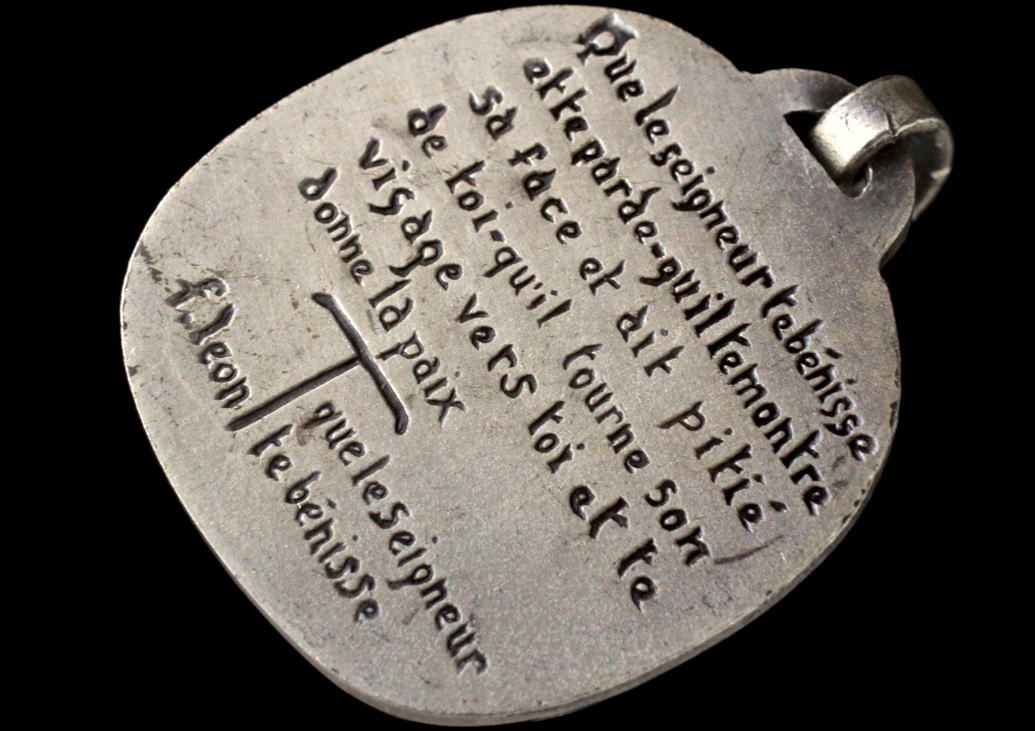 Que le seigneur te bénisse
et te garde-qu'il te montre
sa face et ait pitié
de toi-qu'il tourne son
visage vers toi et te
donne la paix
que le seigneur
f.leon te bénisse